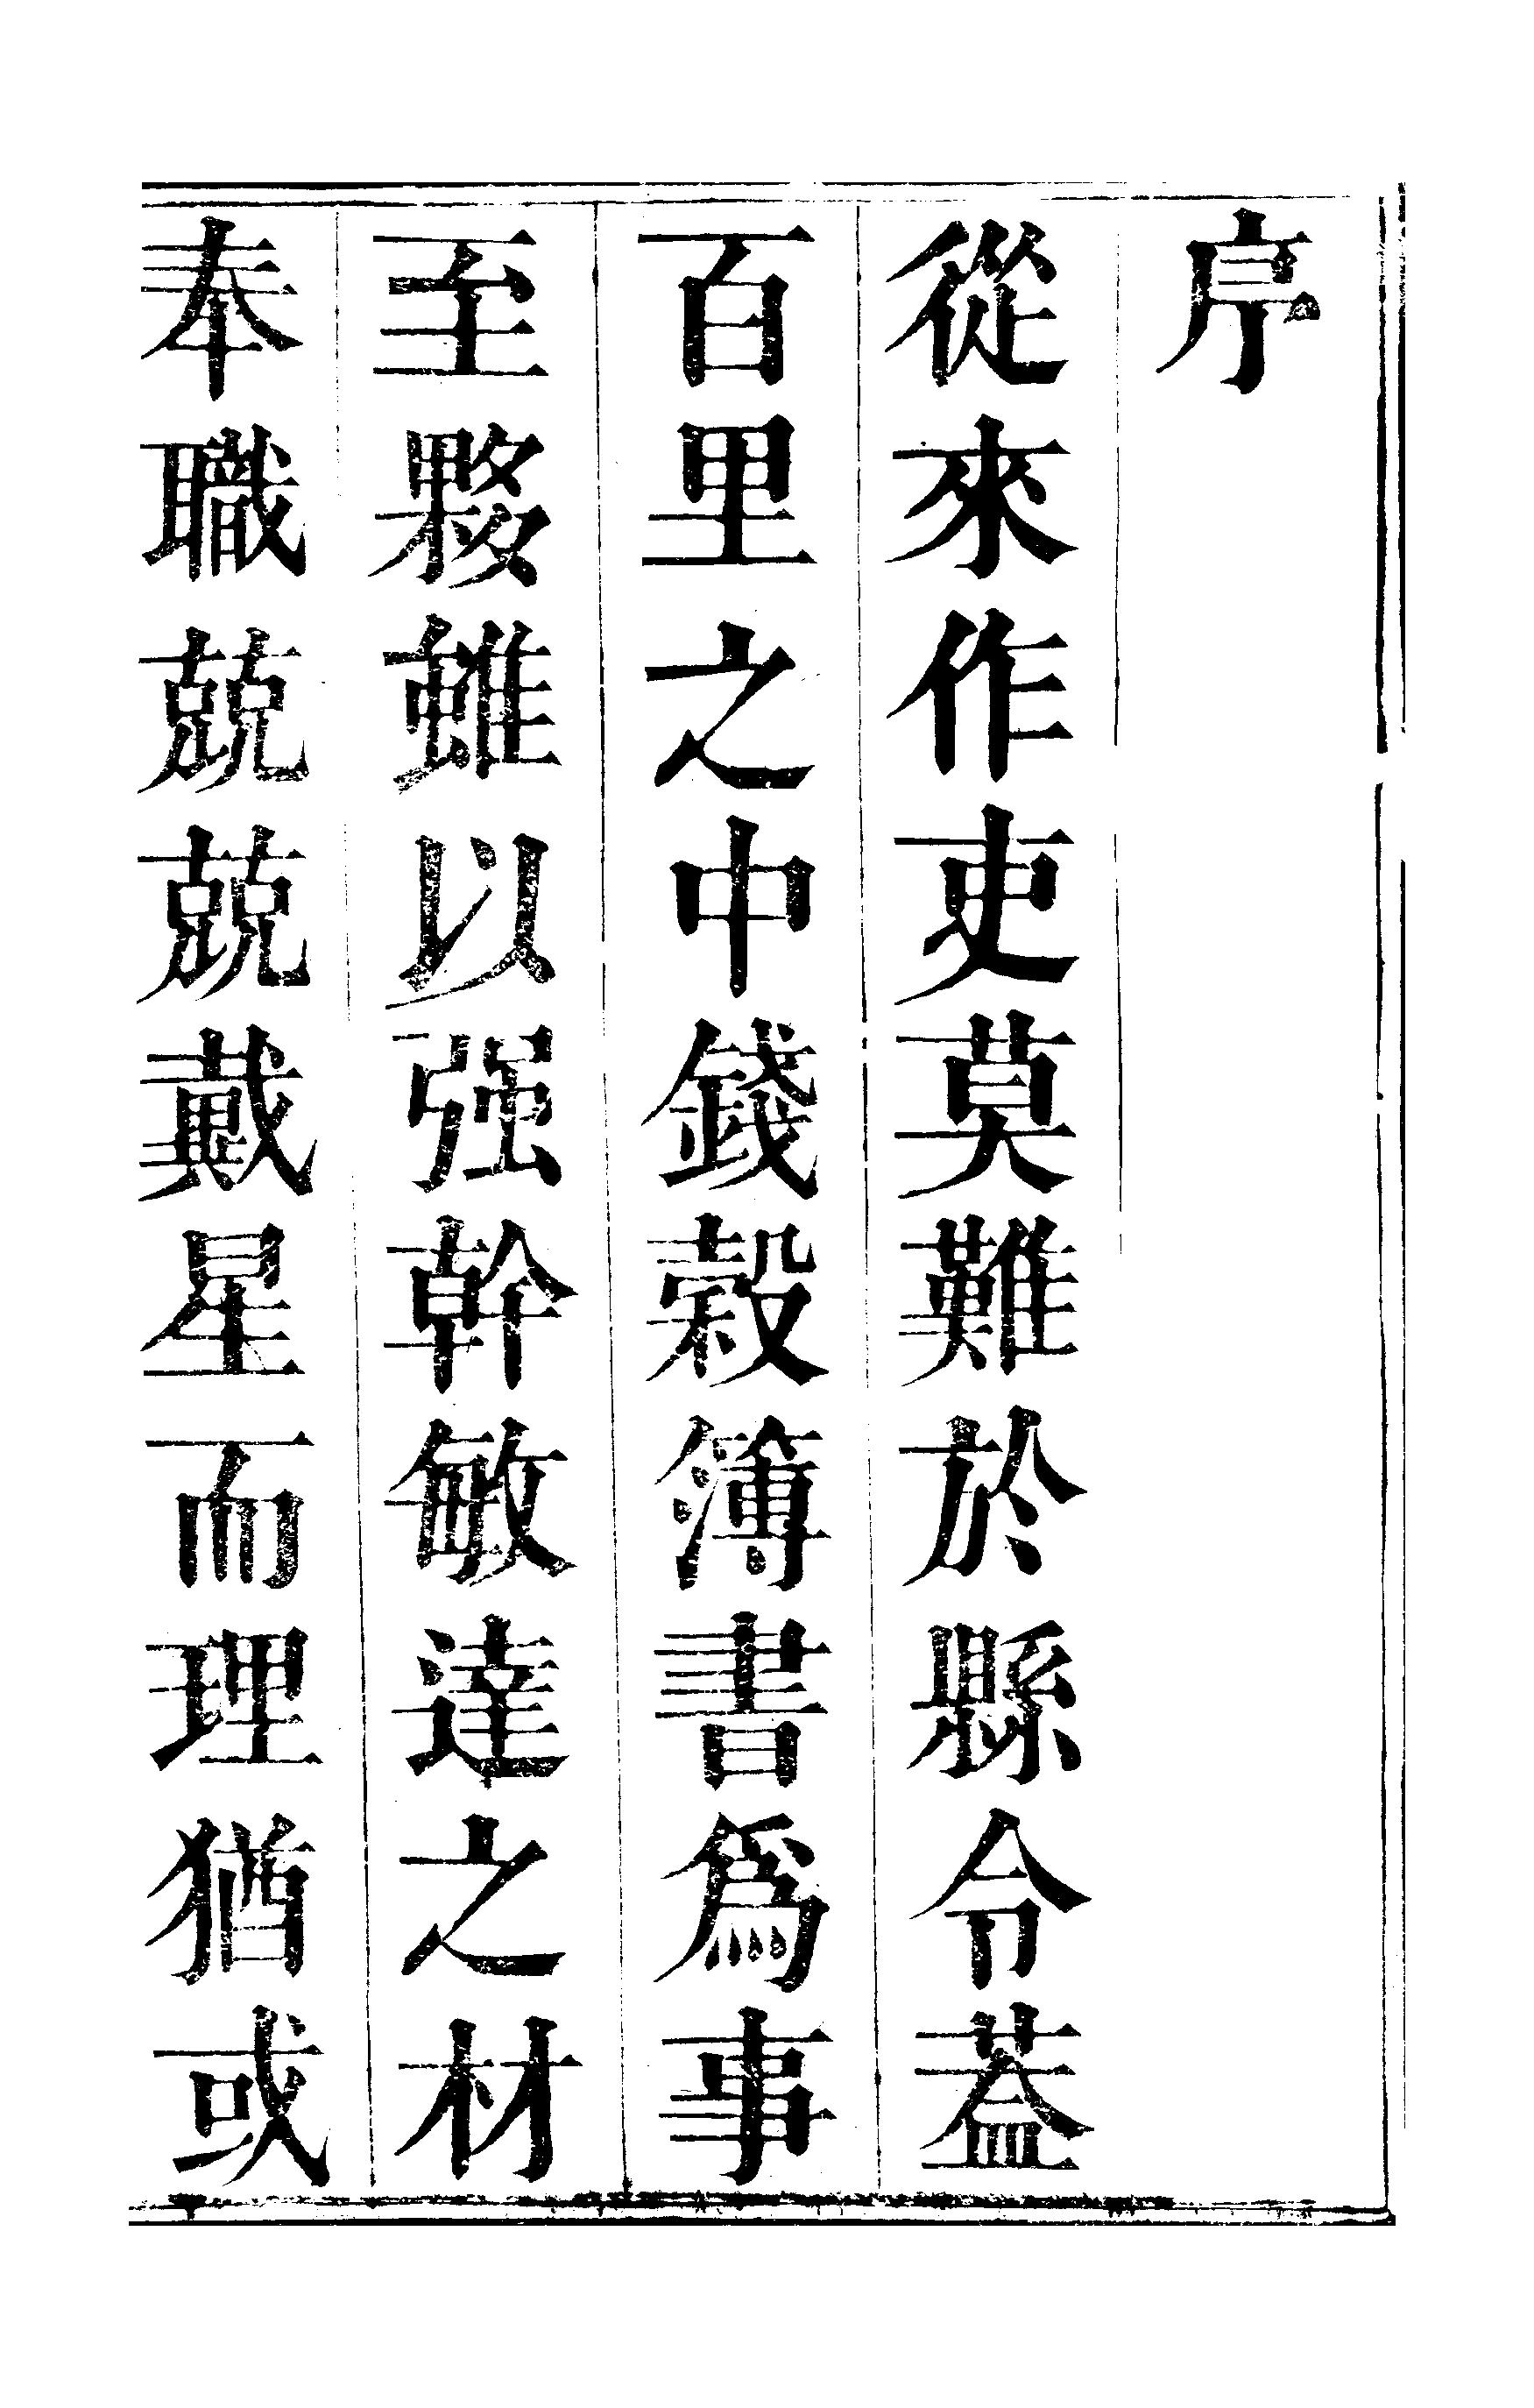 序
從來作吏莫難於縣令蓋
百里之中錢穀簿書爲事
至夥雖以强幹敏達之材
奉職兢兢戴星而理猶或